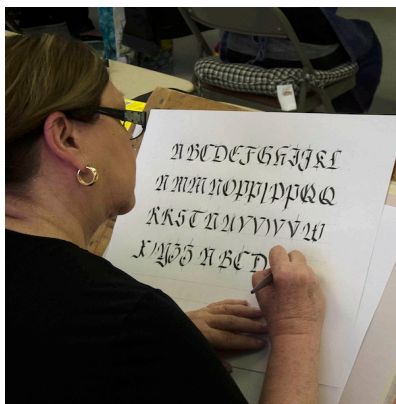 A B C D E F G H I J K L
A M M N O P P P P Q Q
R R S T U U V V W V W
X Y Y Z Z A B C D